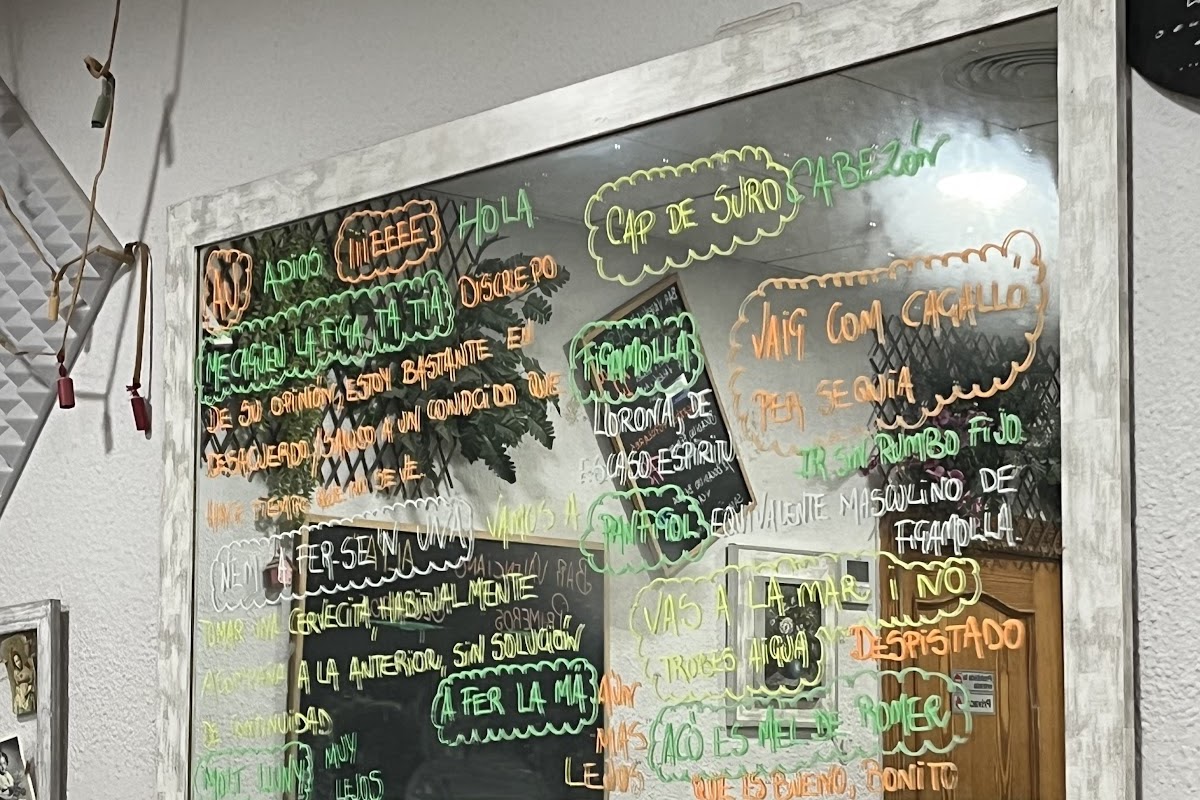 AU ADIOS IIIEEEE HOLA
MECAGUEN LA FIGA TA TIA DISCREPO
DE SU OPINIÓN, ESTOY BASTANTE EN
DESACUERDO / SALUDO A UN CONOCIDO QUE
HACE TIEMPO QUE NO SE VE.
NEM A FER-SE'N UNA VAMOS A
TOMAR UNA CERVECITA, HABINALMENTE
A LA ANTERIOR, SIN SOLUCIÓN
DE CONTINUIDAD
A FER LA MÀ AÚN
MAS
LEJOS
MOLT LLUNY MUY
LEJOS
CAP DE SURO CABEZÓN
FIGAMOLLA
LLORONA, DE
ESCASO ESPIRITU
VAIG COM CAGALLO
PER SEQUIA
IR SIN RUMBO FIJO.
PANFIGOL EQUIVALENTE MASCULINO DE
FIGAMOLLA.
VAS A LA MAR I NO
TROBES AIGUA DESPISTADO
AÇÒ ES MEL DE ROMER
QUE ES BUENO, BONITO